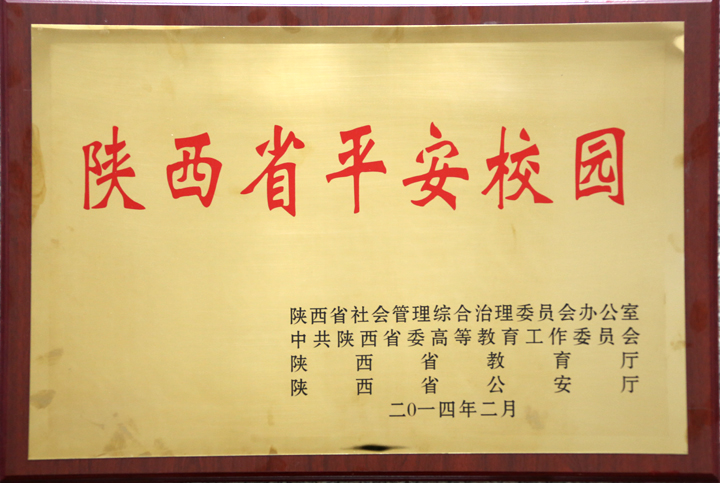 陕西省平安校园
陕西省社会管理综合治理委员会办公室
中共陕西省委高等教育工作委员会
陕西省教育厅
陕西省公安厅
二〇一四年二月